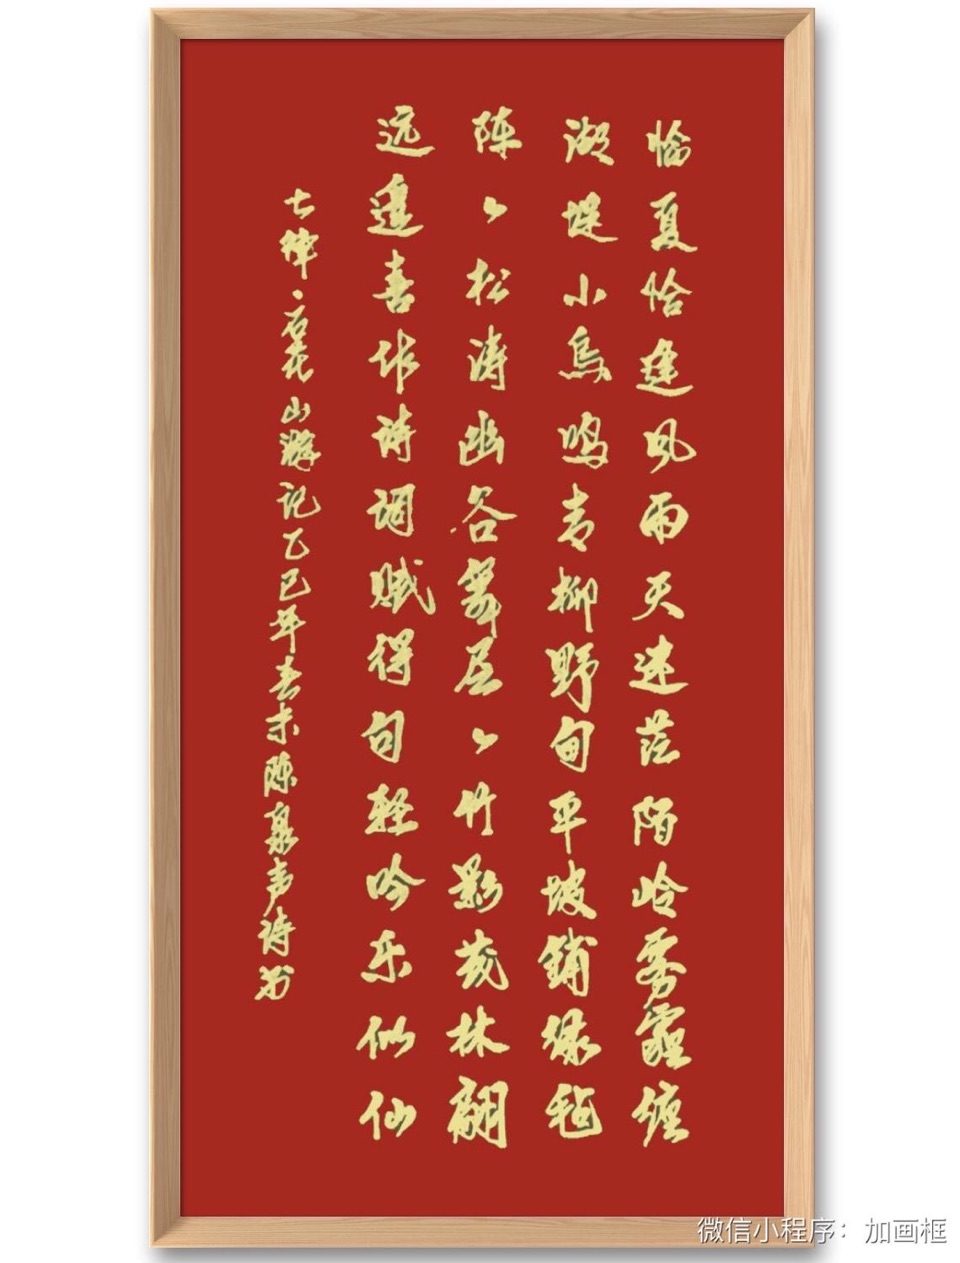 愉夏恰逢风雨天迷茫陌岭雾霾缠
湖堤小鸟鸣青柳野甸平坡铺绿毡
阵阵松涛幽谷舞层层竹影茂林翩
远逢喜作诗词赋得句轻吟乐似仙
七律·石花山游记乙巳年春末陈泉声诗书
微信小程序：加画框